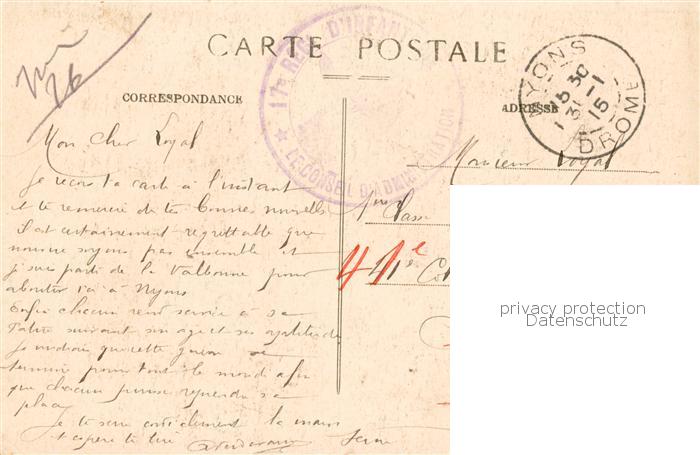 CARTE POSTALE
17e REGt D'INFANTERIE
LE CONSEIL D'ADMINISTRATION
NYONS
15 30
31 -1
15
DROME
CORRESPONDANCE
ADRESSE
Mon cher Loyal
Je recois ta carte à l'instant
et te remercie de tes bonnes nouvelles
Il est certainement regrettable que
nous ne soyons pas ensemble et
je suis parti de la Valbonne pour
aboutir ici à Nyons
Enfin chacun rend service à sa
Patrie suivant son age et ses aptitudes
Je voudrais que cette guerre se
termine pour tout le monde afin
que chacun puisse reprendre sa
place
Je te serre cordialement la main
et espere te lire
Monsieur Loyal
Classe
41e
41e
privacy protection
Datenschutz